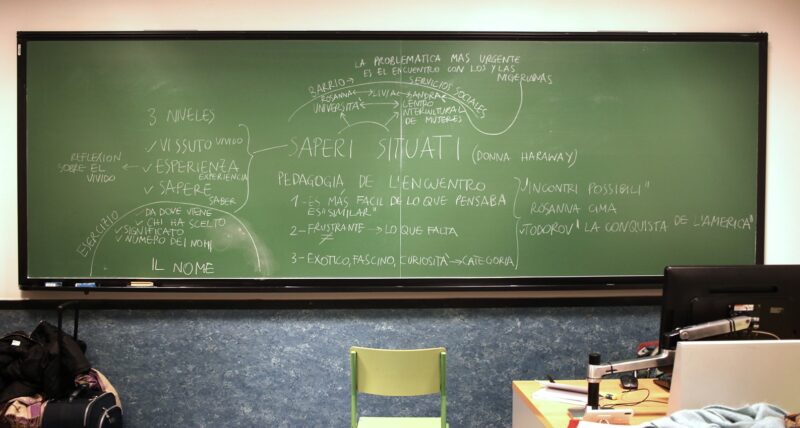 LA PROBLEMATICA MAS URGENTE
ES EL ENCUENTRO CON LOS Y LAS
NIGERIANAS
BARRIO → SERVICIOS SOCIALES
ROSANNA ↔ LIVIA ↔ SANDRA
UNIVERSITÀ
CENTRO
INTERCULTURAL
DE MUJERES
3 NIVELES
✓ VISSUTO VIVIDO
REFLEXION
SOBRE EL
VIVIDO
← ✓ ESPERIENZA
EXPERIENCIA
✓ SAPERE
SABER
SAPERI SITUATI (DONNA HARAWAY)
PEDAGOGIA DE L'ENCUENTRO
1 - ES MÁS FÁCIL DE LO QUE PENSABA
ES "SIMILAR"
2 - FRUSTRANTE → LO QUE FALTA
≠
3 - EXOTICO, FASCINO, CURIOSITÀ → CATEGORIA
"INCONTRI POSSIBILI"
ROSANNA CIMA
✓ TODOROV "LA CONQUISTA DE L'AMERICA"
EJERCIZIO
✓ DA DOVE VIENE
✓ CHI HA SCELTO
✓ SIGNIFICATO
✓ NUMERO DEI NOMI
IL NOME